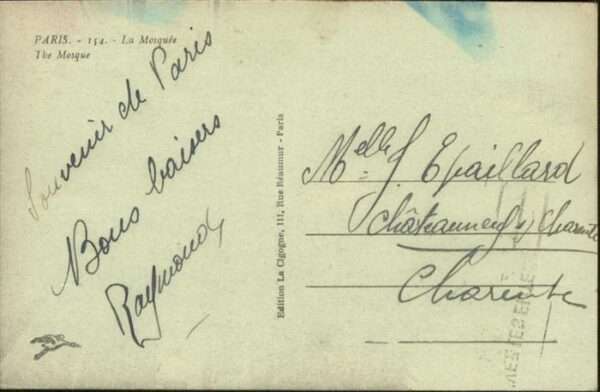 PARIS. - 154. - La Mosquée
The Mosque
Souvenir de Paris
Bons baisers
Raymond
Edition La Cigogne, 111, Rue Réaumur - Paris
Melle J. Epaillard
Châteauneuf s/ Charente
Charente